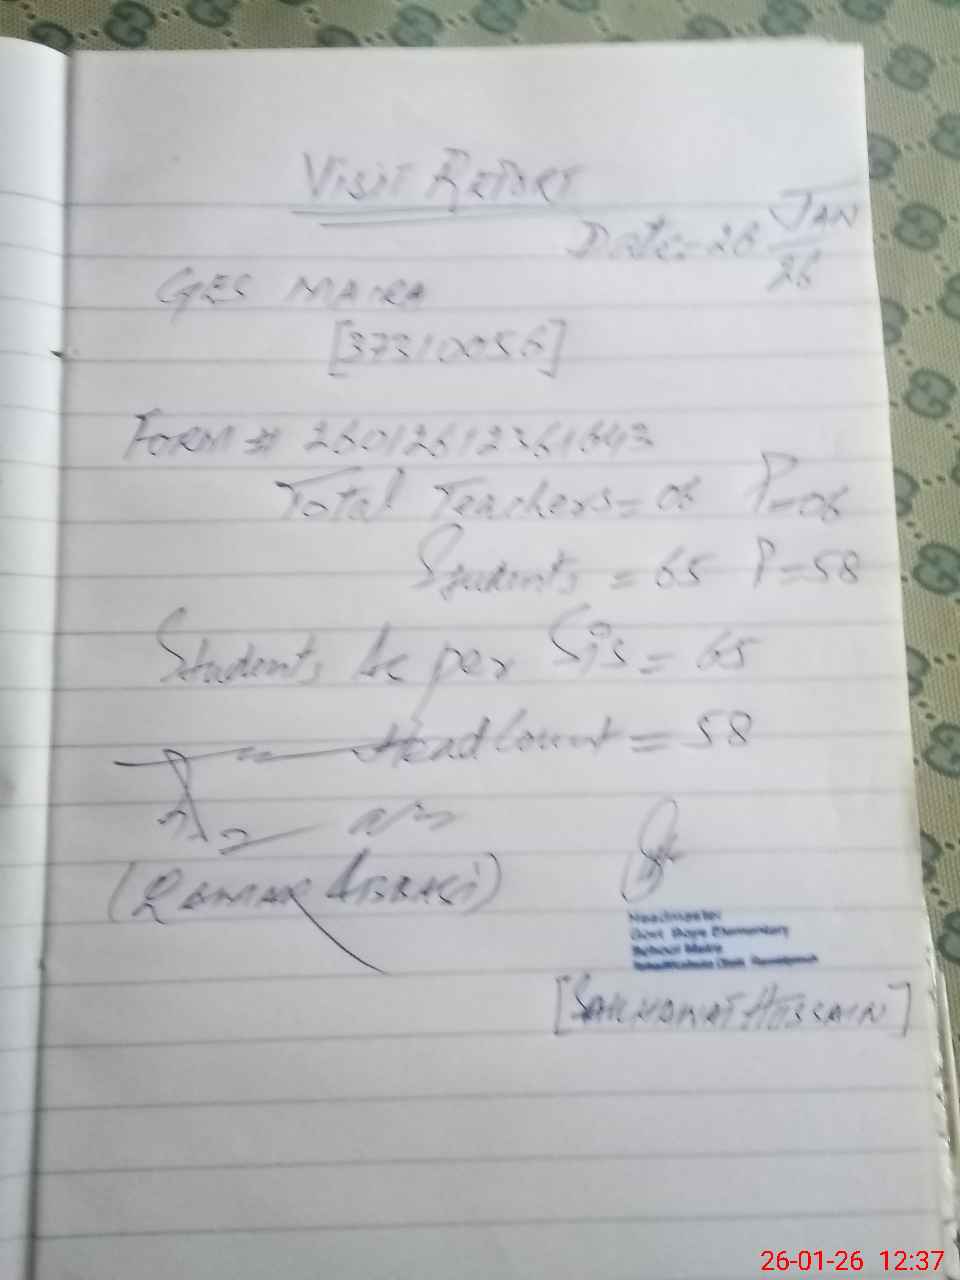 VISIT REPORT
Date:- 26 JAN
26
GES MAIRA
[37310056]
FORM # 26012612361643
Total Teachers = 06 P=06
Students = 65 P=58
Students As per Sis = 65
Head Count = 58
(QAMAR ABBASI)
Headmaster
Govt. Boys Elementary
School Maira
[SAKHAWAT HUSSAIN]
26-01-26 12:37